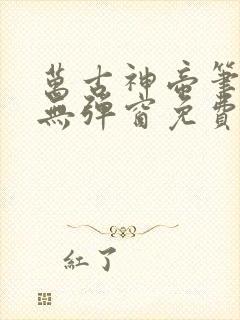 萬古神帝筆
無彈窗免費
紅了